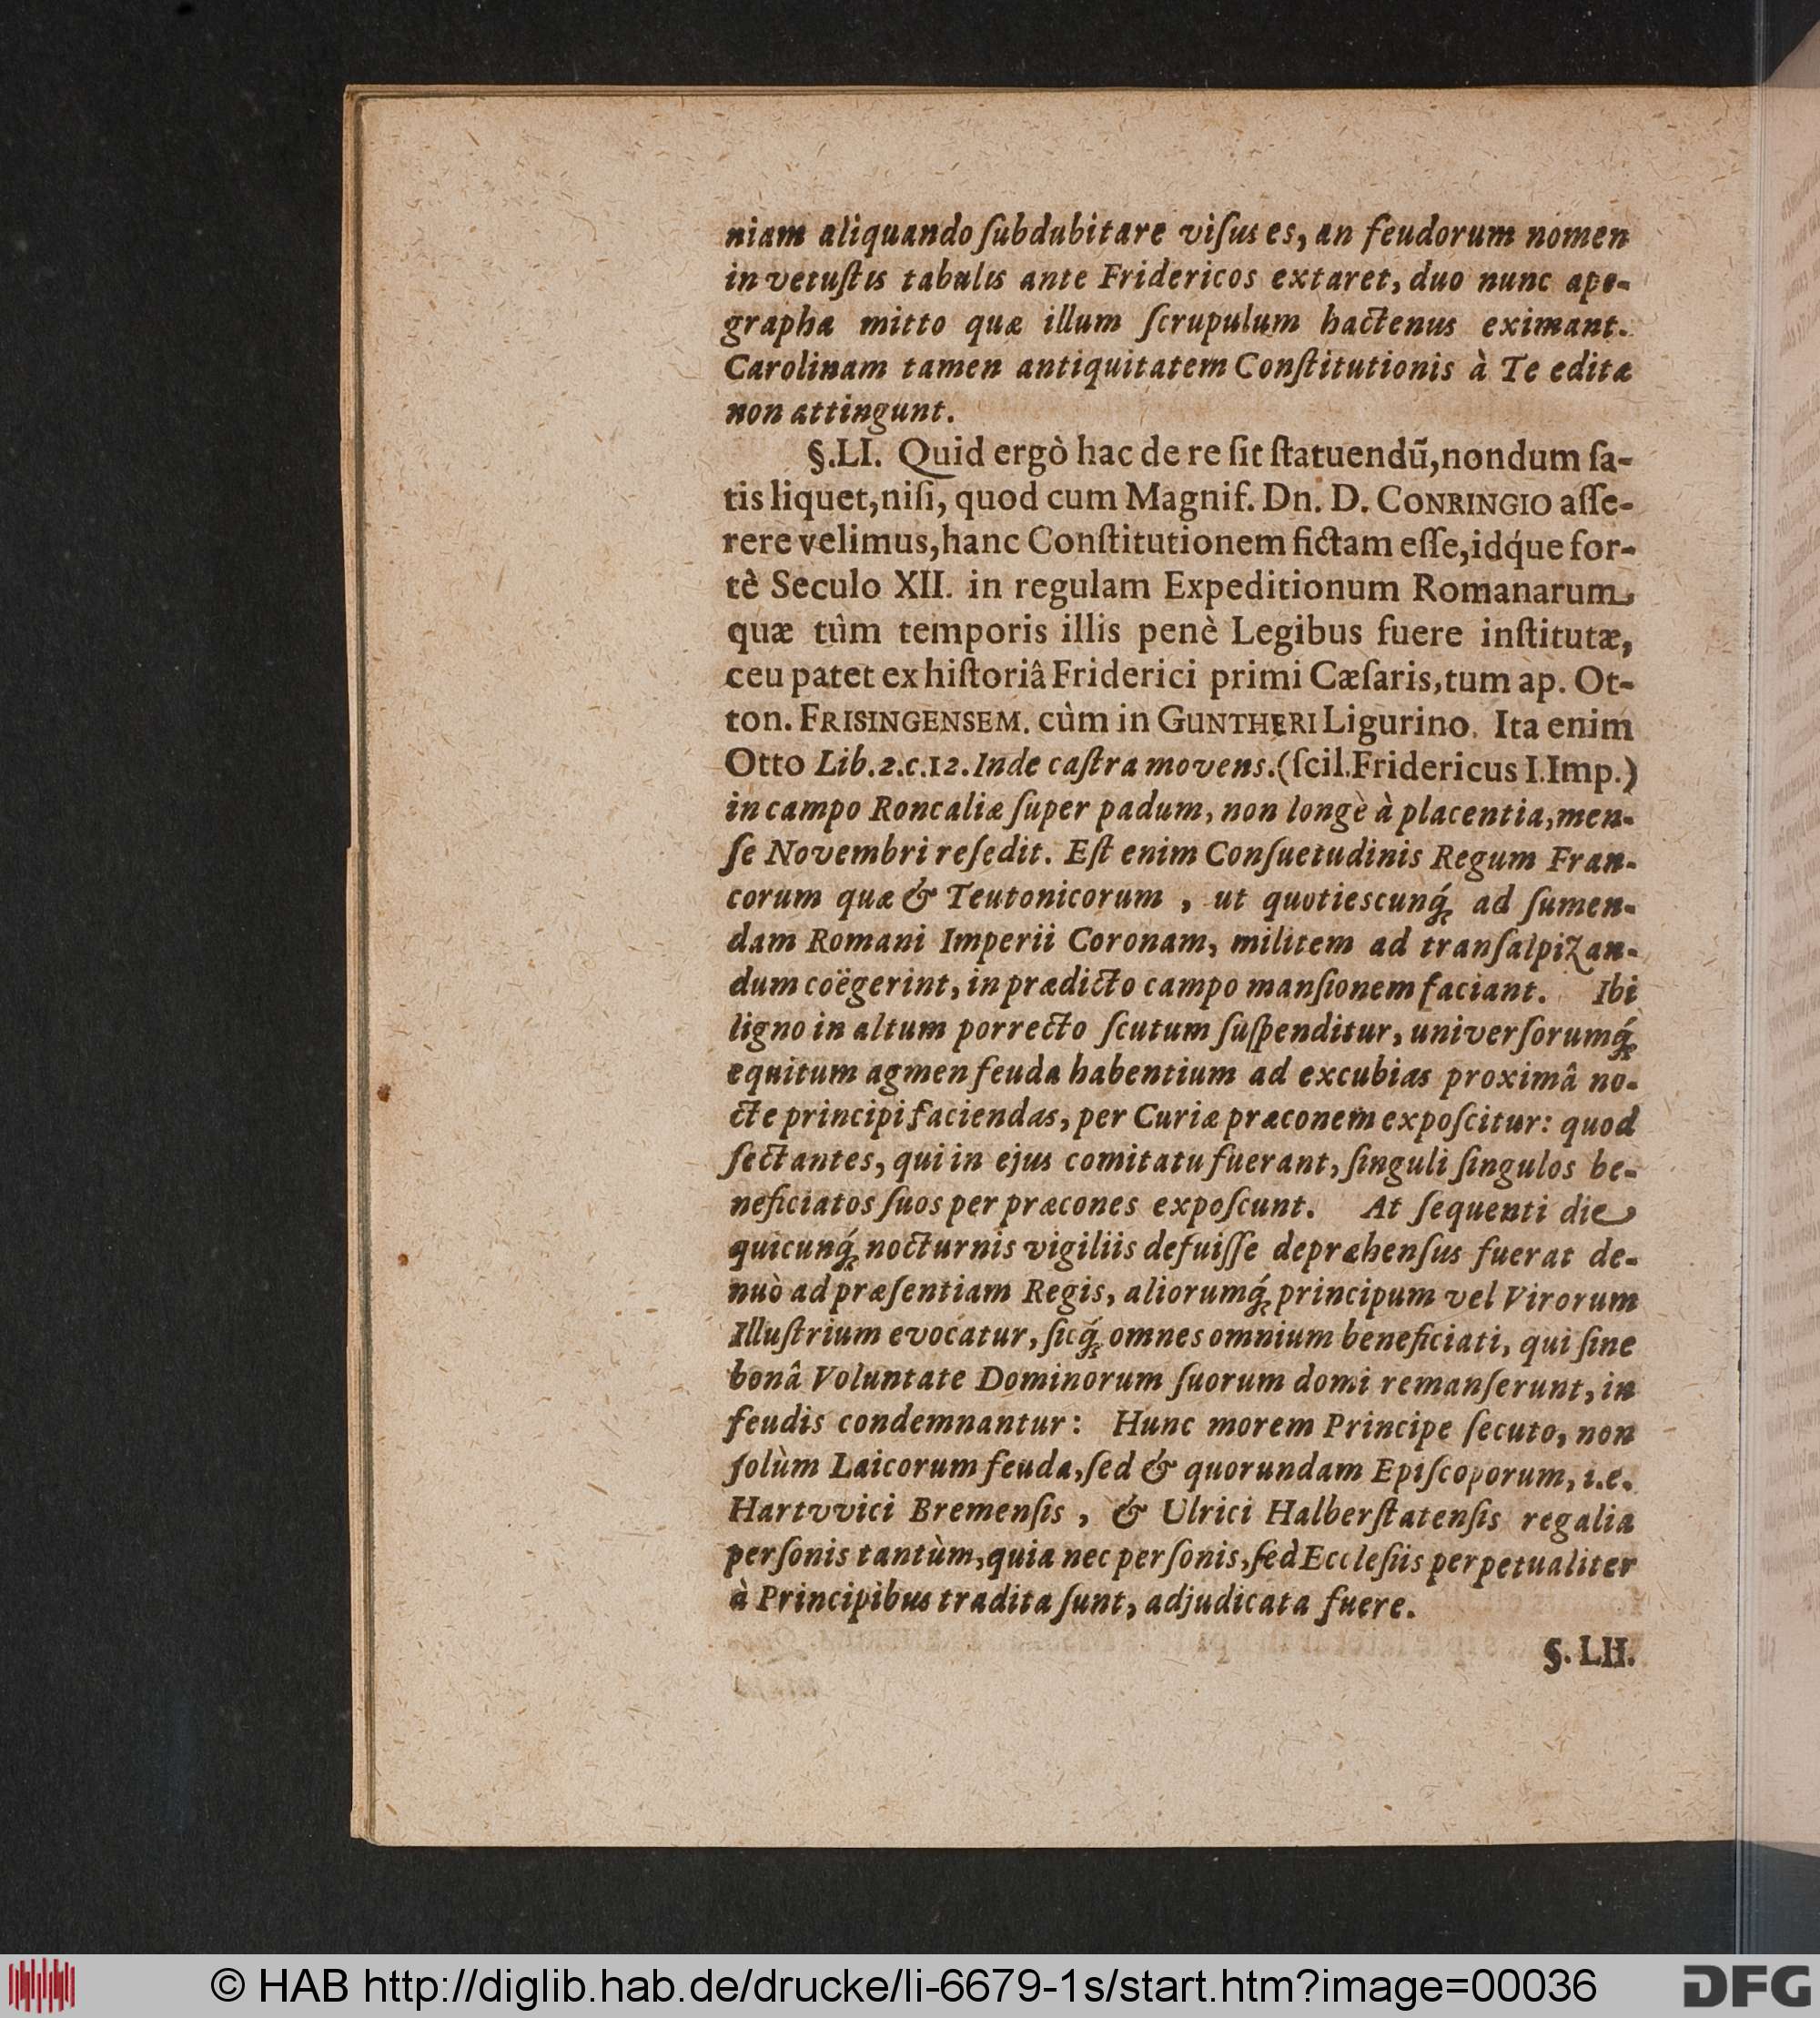 niam aliquando ſubdubitare viſus es, an feudorum nomen
in vetuſtis tabulis ante Fridericos extaret, duo nunc apo-
grapha mitto quæ illum ſcrupulum hactenus eximant.
Carolinam tamen antiquitatem Conſtitutionis à Te editæ
non attingunt.
§.LI. Quid ergò hac de re ſit ſtatuendũ, nondum ſa-
tis liquet, niſi, quod cum Magnif. Dn. D. CONRINGIO aſſe-
rere velimus, hanc Conſtitutionem fictam eſſe, idq́ue for-
tè Seculo XII. in regulam Expeditionum Romanarum,
quæ tùm temporis illis penè Legibus fuere inſtitutæ,
ceu patet ex hiſtoriâ Friderici primi Cæſaris, tum ap. Ot-
ton. FRISINGENSEM. cùm in GUNTHERI Ligurino. Ita enim
Otto Lib.2.c.12. Inde caſtra movens. (ſcil. Fridericus I. Imp.)
in campo Roncaliæ ſuper padum, non longè à placentia, men-
ſe Novembri reſedit. Eſt enim Conſuetudinis Regum Fran-
corum quæ & Teutonicorum , ut quotiescunq́; ad ſumen-
dam Romani Imperii Coronam, militem ad tranſalpizan-
dum coëgerint, in prædicto campo manſionem faciant. Ibi
ligno in altum porrecto ſcutum ſuſpenditur, univerſorumq́;
equitum agmen feuda habentium ad excubias proximâ no-
cte principi faciendas, per Curiæ præconem expoſcitur: quod
ſectantes, qui in ejus comitatu fuerant, ſinguli ſingulos be-
neficiatos ſuos per præcones expoſcunt. At ſequenti die
quicunq́; nocturnis vigiliis defuiſſe deprehenſus fuerat de-
nuò ad præſentiam Regis, aliorumq́; principum vel Virorum
Illuſtrium evocatur, ſicq́; omnes omnium beneficiati, qui ſine
bonâ Voluntate Dominorum ſuorum domi remanſerunt, in
feudis condemnantur: Hunc morem Principe ſecuto, non
ſolùm Laicorum feuda, ſed & quorundam Epiſcoporum, i.e.
Hartvvici Bremenſis , & Ulrici Halberſtatenſis regalia
perſonis tantùm, quia nec perſonis, ſed Eccleſiis perpetualiter
à Principibus tradita ſunt, adjudicata fuere.
§. LII.
© HAB http://diglib.hab.de/drucke/li-6679-1s/start.htm?image=00036
DFG